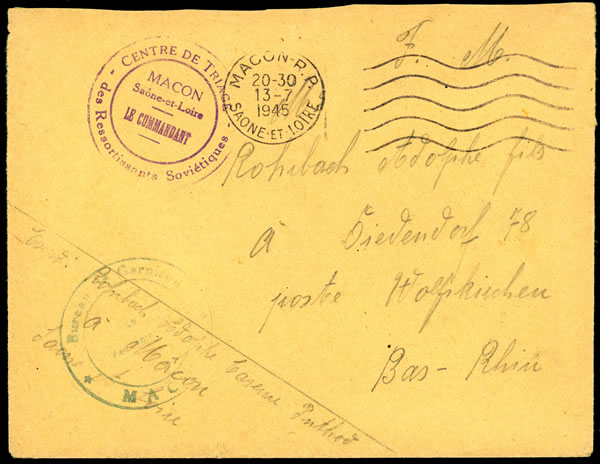 CENTRE DE TRIAGE
des Ressortissants Soviétiques
MACON
Saône-et-Loire
LE COMMANDANT
MACON-R.P.
20-30
13-7
1945
SAONE-ET-LOIRE
F. M.
Rohrbach Adolphe fils
à Diedendorf 78
poste Wolfskirchen
Bas-Rhin
Bureau Garnison
MAC
Rohrbach Adolphe Caserne
à Mâcon
Loire